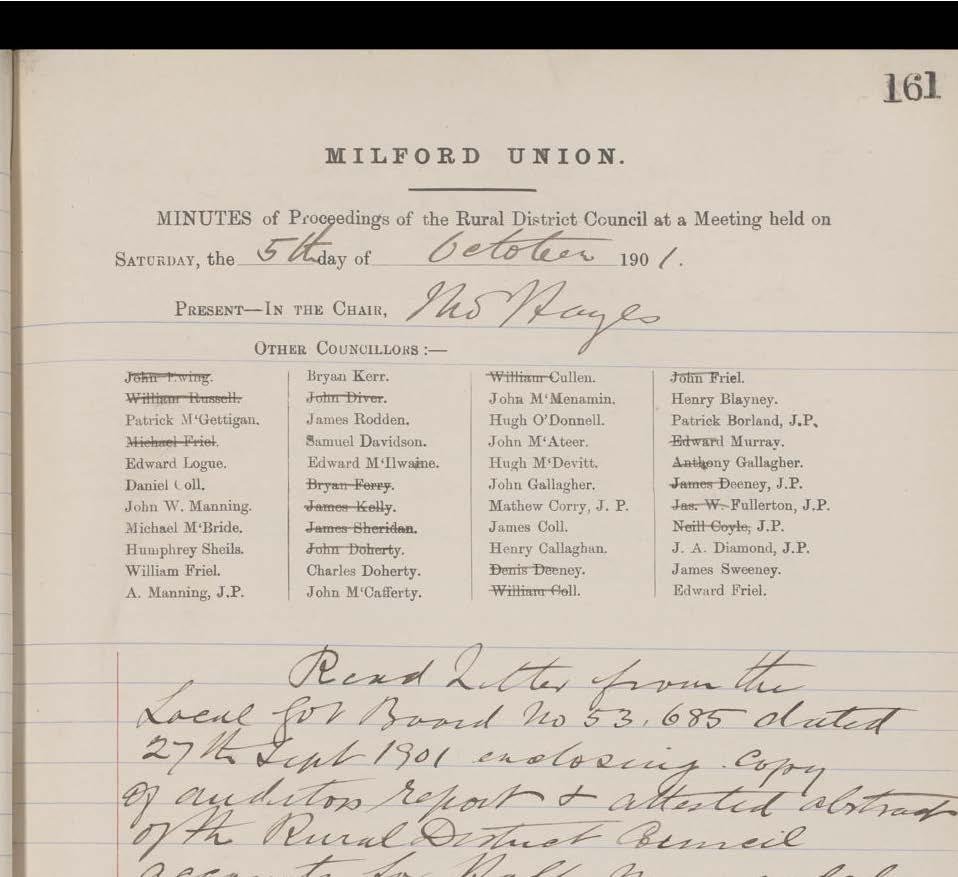 161
MILFORD UNION.
MINUTES of Proceedings of the Rural District Council at a Meeting held on
SATURDAY, the 5th day of October 1901.
PRESENT—IN THE CHAIR, Thos Hayes
OTHER COUNCILLORS :—
John Ewing.
William Russell.
Patrick M'Gettigan.
Michael Friel.
Edward Logue.
Daniel Coll.
John W. Manning.
Michael M'Bride.
Humphrey Sheils.
William Friel.
A. Manning, J.P.
Bryan Kerr.
John Diver.
James Rodden.
Samuel Davidson.
Edward M'Ilwaine.
Bryan Ferry.
James Kelly.
James Sheridan.
John Doherty.
Charles Doherty.
John M'Cafferty.
William Cullen.
John M'Menamin.
Hugh O'Donnell.
John M'Ateer.
Hugh M'Devitt.
John Gallagher.
Mathew Corry, J. P.
James Coll.
Henry Callaghan.
Denis Deeney.
William Coll.
John Friel.
Henry Blayney.
Patrick Borland, J.P.
Edward Murray.
Anthony Gallagher.
James Deeney, J.P.
Jas. W. Fullerton, J.P.
Neill Coyle, J.P.
J. A. Diamond, J.P.
James Sweeney.
Edward Friel.
Read Letter from the
Local Gov Board No 53,685 dated
27th Sept 1901 enclosing copy
of auditors report & attested abstract
of the Rural District Council
accounts for Half